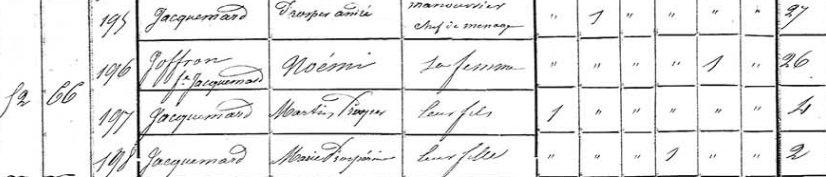 195 Jacquemard Prosper André manouvrier chef de ménage " 1 " " " " 27
196 Joffron fe Jacquemard Noémi sa femme " " " " 1 " 26
52 66 197 Jacquemard Martin Prosper leur fils 1 " " " " " 4
198 Jacquemard Marie leur fille " " " 1 " " 2